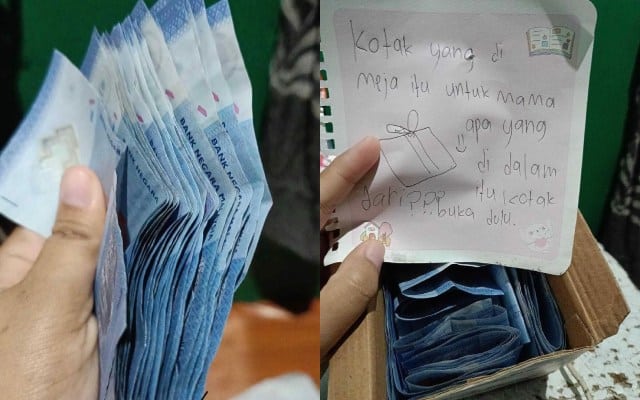 BANK NEGARA M
BANK NEGARA
Kotak yang di
meja itu untuk mama
apa yang
di dalam
dari??? itu kotak
buka dulu.